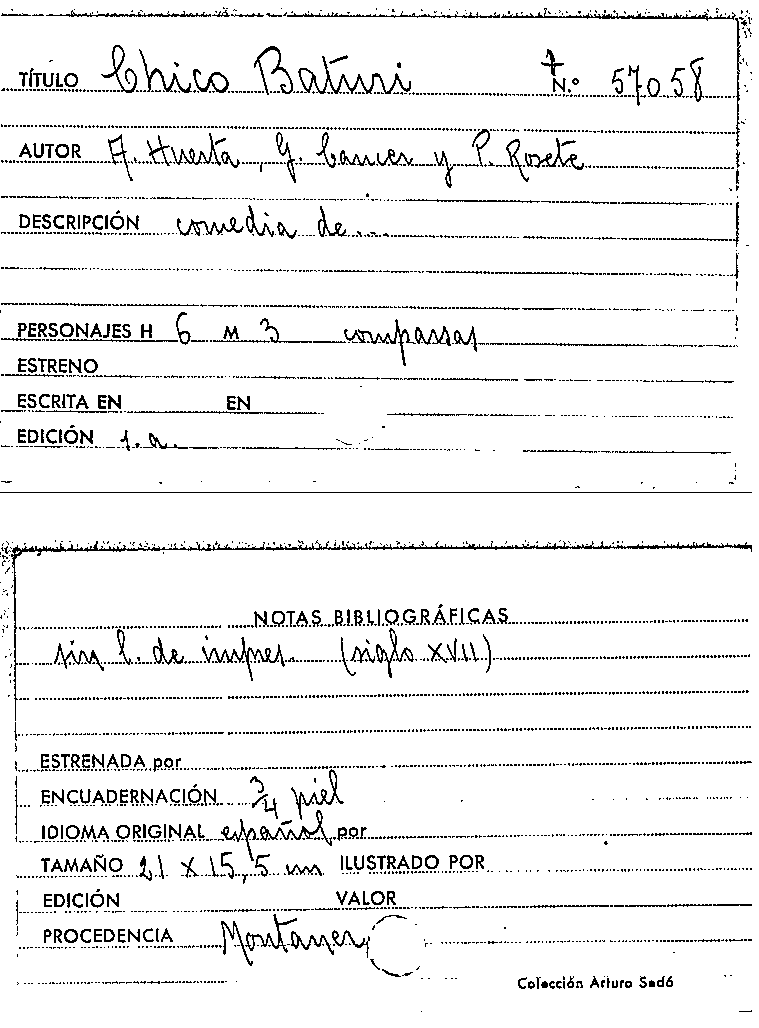 TÍTULO Chico Baturi N.º 57058
AUTOR A. Huerta, G. Cancer y P. Rosete
DESCRIPCIÓN comedia de...
PERSONAJES H 6 M 3 comparsas
ESTRENO
ESCRITA EN EN
EDICIÓN s. a.
NOTAS BIBLIOGRÁFICAS
sin l. de impres. (siglo XVII)
ESTRENADA por
ENCUADERNACIÓN 3/4 piel
IDIOMA ORIGINAL español por
TAMAÑO 21 X 15,5 cm ILUSTRADO POR
EDICIÓN VALOR
PROCEDENCIA Montaner
Colección Arturo Sedó